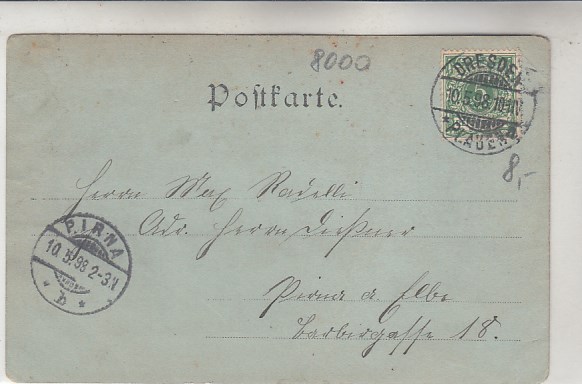 8000
DRESDEN
10.5.98.10-11V.
* PLAUEN *
Postkarte.
8,-
Herrn Max Radelli
Adr. Herrn Dießner
PIRNA
10.5.98 2-3N
* b *
Pirna a. Elbe
Barbirgasse 18.